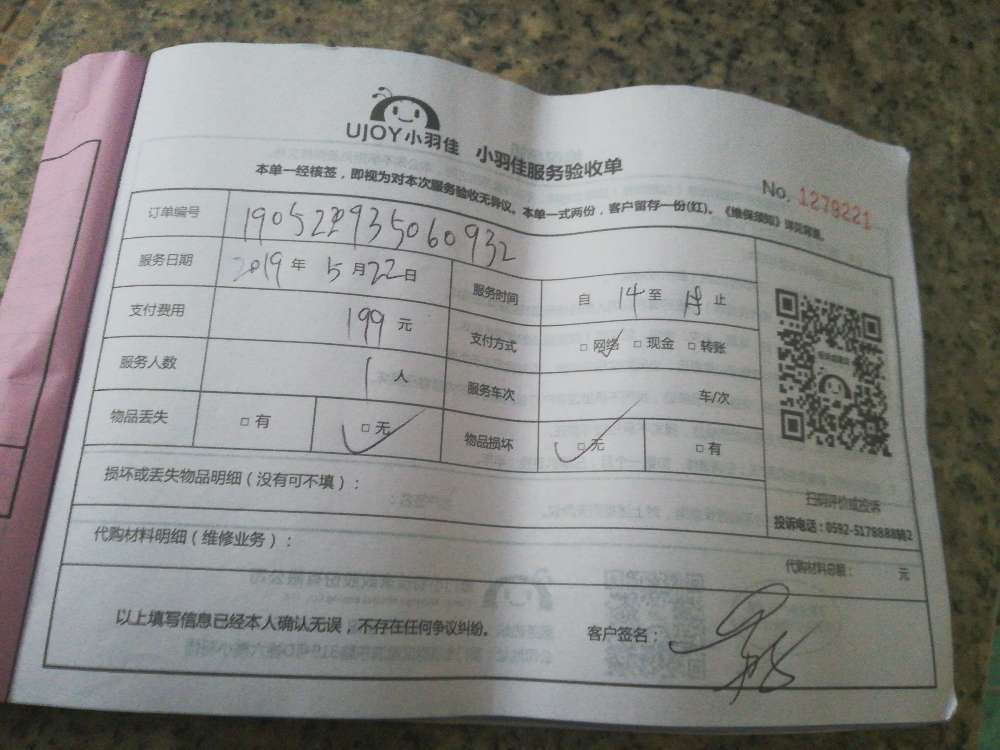 UJOY小羽佳 小羽佳服务验收单
No. 1279221
本单一经核签，即视为对本次服务验收无异议。本单一式两份，客户留存一份(红)。《维保须知》详见背面。
订单编号
服务日期 2019 年 5 月 22 日 服务时间 自 14 至 止
支付费用 199 元 支付方式 □ 网络 □ 现金 □ 转账
服务人数 1 人 服务车次 车/次
物品丢失 □ 有 □ 无 物品损坏 □ 无 □ 有
扫码评价或投诉
投诉电话：0592-5178888转2
损坏或丢失物品明细（没有可不填）：
代购材料明细（维修业务）：
代购材料总额： 元
以上填写信息已经本人确认无误，不存在任何争议纠纷。 客户签名：